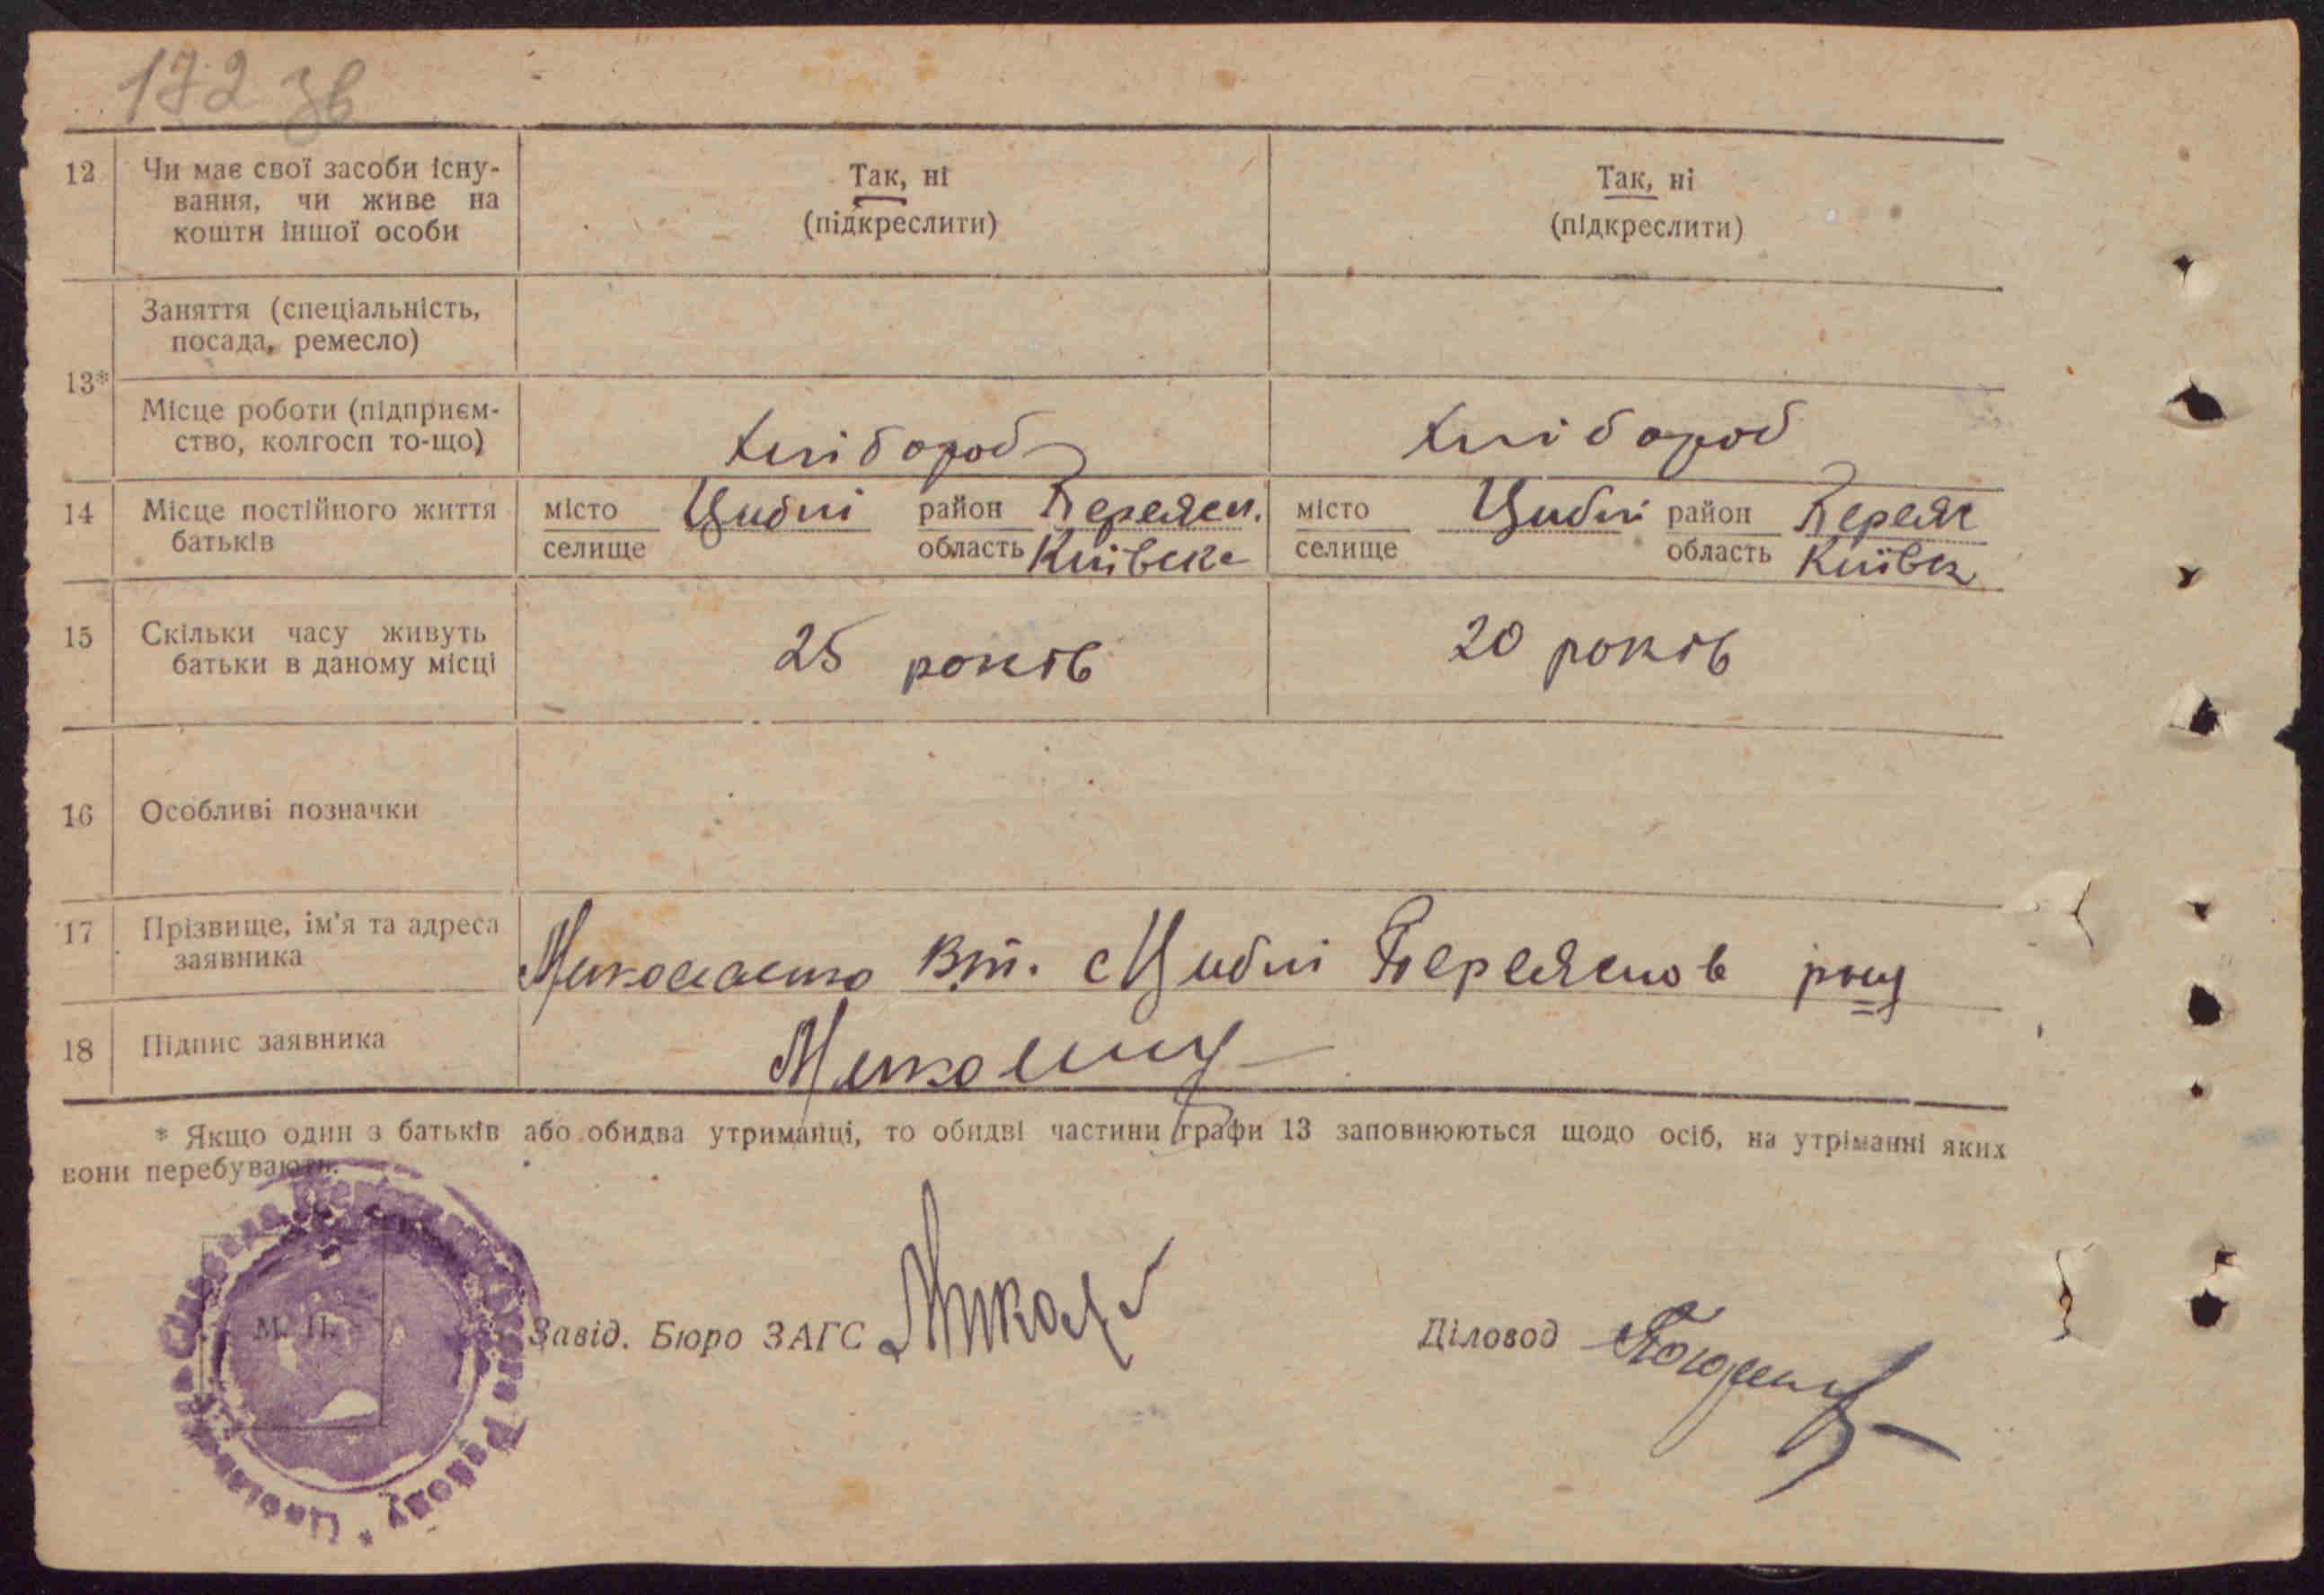 172 зв
12 Чи має свої засоби існу- Так, ні Так, ні
вання, чи живе на (підкреслити) (підкреслити)
кошти іншої особи
Заняття (спеціальність,
посада, ремесло)
13*
Місце роботи (підприєм-
ство, колгосп то-що) хлібороб хлібороб
14 Місце постійного життя місто Циблі район Переясл. місто Циблі район Перея
батьків селище область Київськ селище область Київськ
15 Скільки часу живуть 25 років 20 років
батьки в даному місці
16 Особливі позначки
17 Прізвище, ім'я та адреса
заявника с Циблі Переяслов
18 Підпис заявника
* Якщо один з батьків або обидва утриманці, то обидві частини графи 13 заповнюються щодо осіб, на утріманні яких
вони перебувають.
М. П.
Завід. Бюро ЗАГС
Діловод